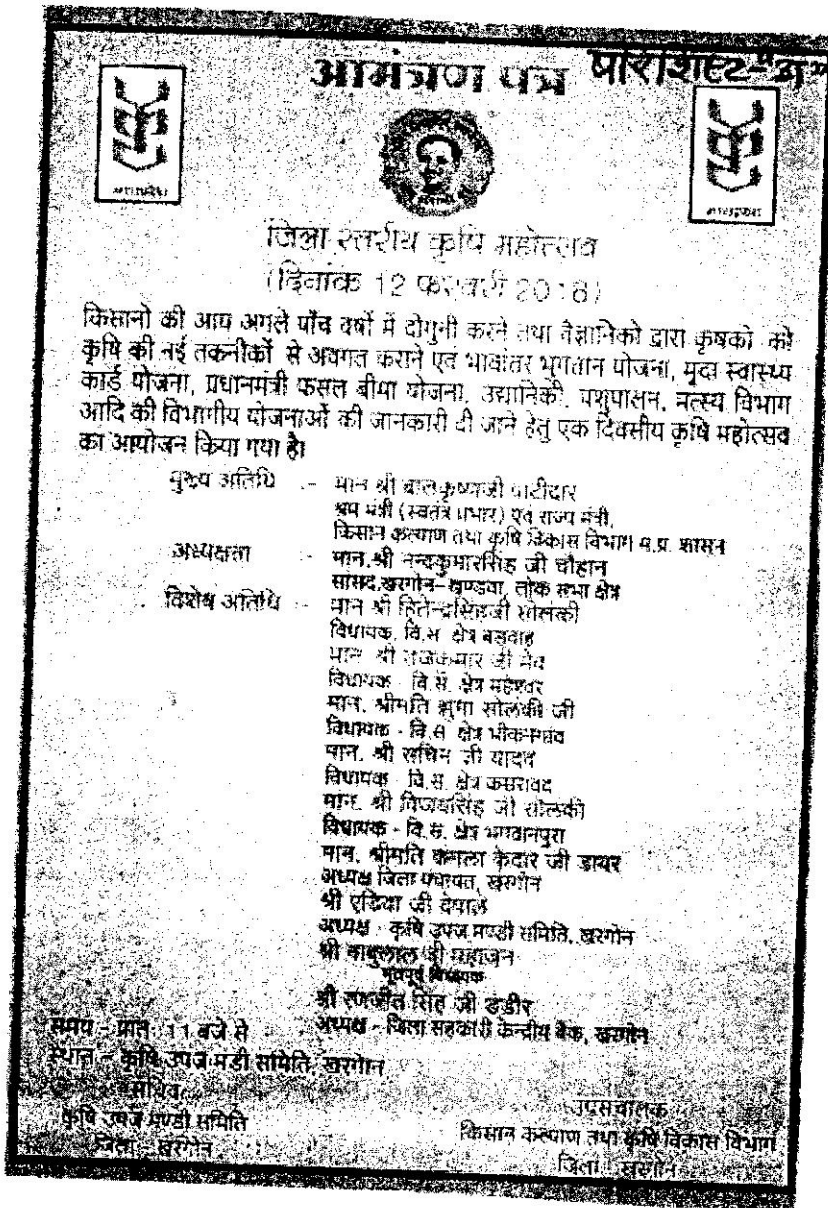 आमंत्रण पत्र परिशिष्ट-
जिला स्तरीय कृषि महोत्सव
(दिनांक 12 फरवरी 2018)
किसानो की आय अगले पाँच वर्षो में दोगुनी करने तथा वैज्ञानिको द्वारा कृषको को
कृषि की नई तकनीकों से अवगत कराने एवं भावांतर भुगतान योजना, मृदा स्वास्थ्य
कार्ड योजना, प्रधानमंत्री फसल बीमा योजना, उद्यानिकी, पशुपालन, मत्स्य विभाग
आदि की विभागीय योजनाओं की जानकारी दी जाने हेतु एक दिवसीय कृषि महोत्सव
का आयोजन किया गया है।
मुख्य अतिथि :- मान श्री बालकृष्णजी पाटीदार
श्रम मंत्री (स्वतंत्र प्रभार) एवं राज्य मंत्री,
किसान कल्याण तथा कृषि विकास विभाग म.प्र. शासन
अध्यक्षता - मान.श्री नन्दकुमारसिंह जी चौहान
सांसद,खरगोन-खण्डवा, लोक सभा क्षेत्र
विशेष अतिथि :- मान श्री हितेन्द्रसिंहजी सोलंकी
विधायक, वि.स. क्षेत्र बड़वाह
मान. श्री राजकुमार जी मेव
विधायक - वि.स. क्षेत्र महेश्वर
मान. श्रीमति झुमा सोलंकी जी
विधायक - वि.स. क्षेत्र भीकनगांव
मान. श्री सचिन जी यादव
विधायक - वि.स. क्षेत्र कसरावद
मान. श्री विजयसिंह जी सोलंकी
विधायक - वि.स. क्षेत्र भगवानपुरा
मान. श्रीमति कमला केदार जी डावर
अध्यक्ष जिला पंचायत, खरगोन
श्री एडिया जी देपाले
अध्यक्ष - कृषि उपज मण्डी समिति, खरगोन
श्री बाबुलाल जी महाजन
भूतपूर्व विधायक
श्री रणजीत सिंह जी डंडीर
अध्यक्ष - जिला सहकारी केन्द्रीय बैंक, खरगोन
समय - प्रातः 11 बजे से
स्थान - कृषि उपज मंडी समिति, खरगोन
सचिव
कृषि उपज मण्डी समिति
जिला - खरगोन
उपसंचालक
किसान कल्याण तथा कृषि विकास विभाग
जिला - खरगोन